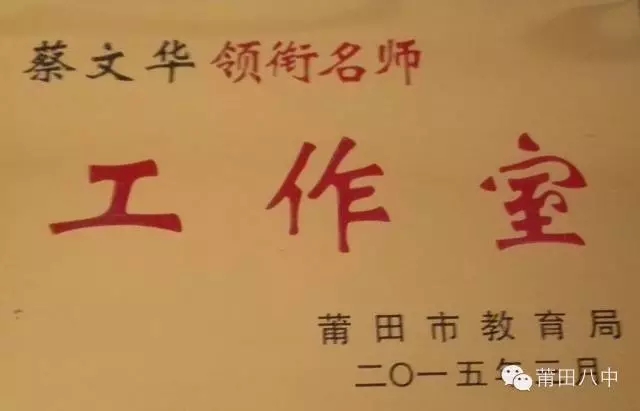 蔡文华领衔名师
工作室
莆田市教育局
二〇一五年三月
莆田八中